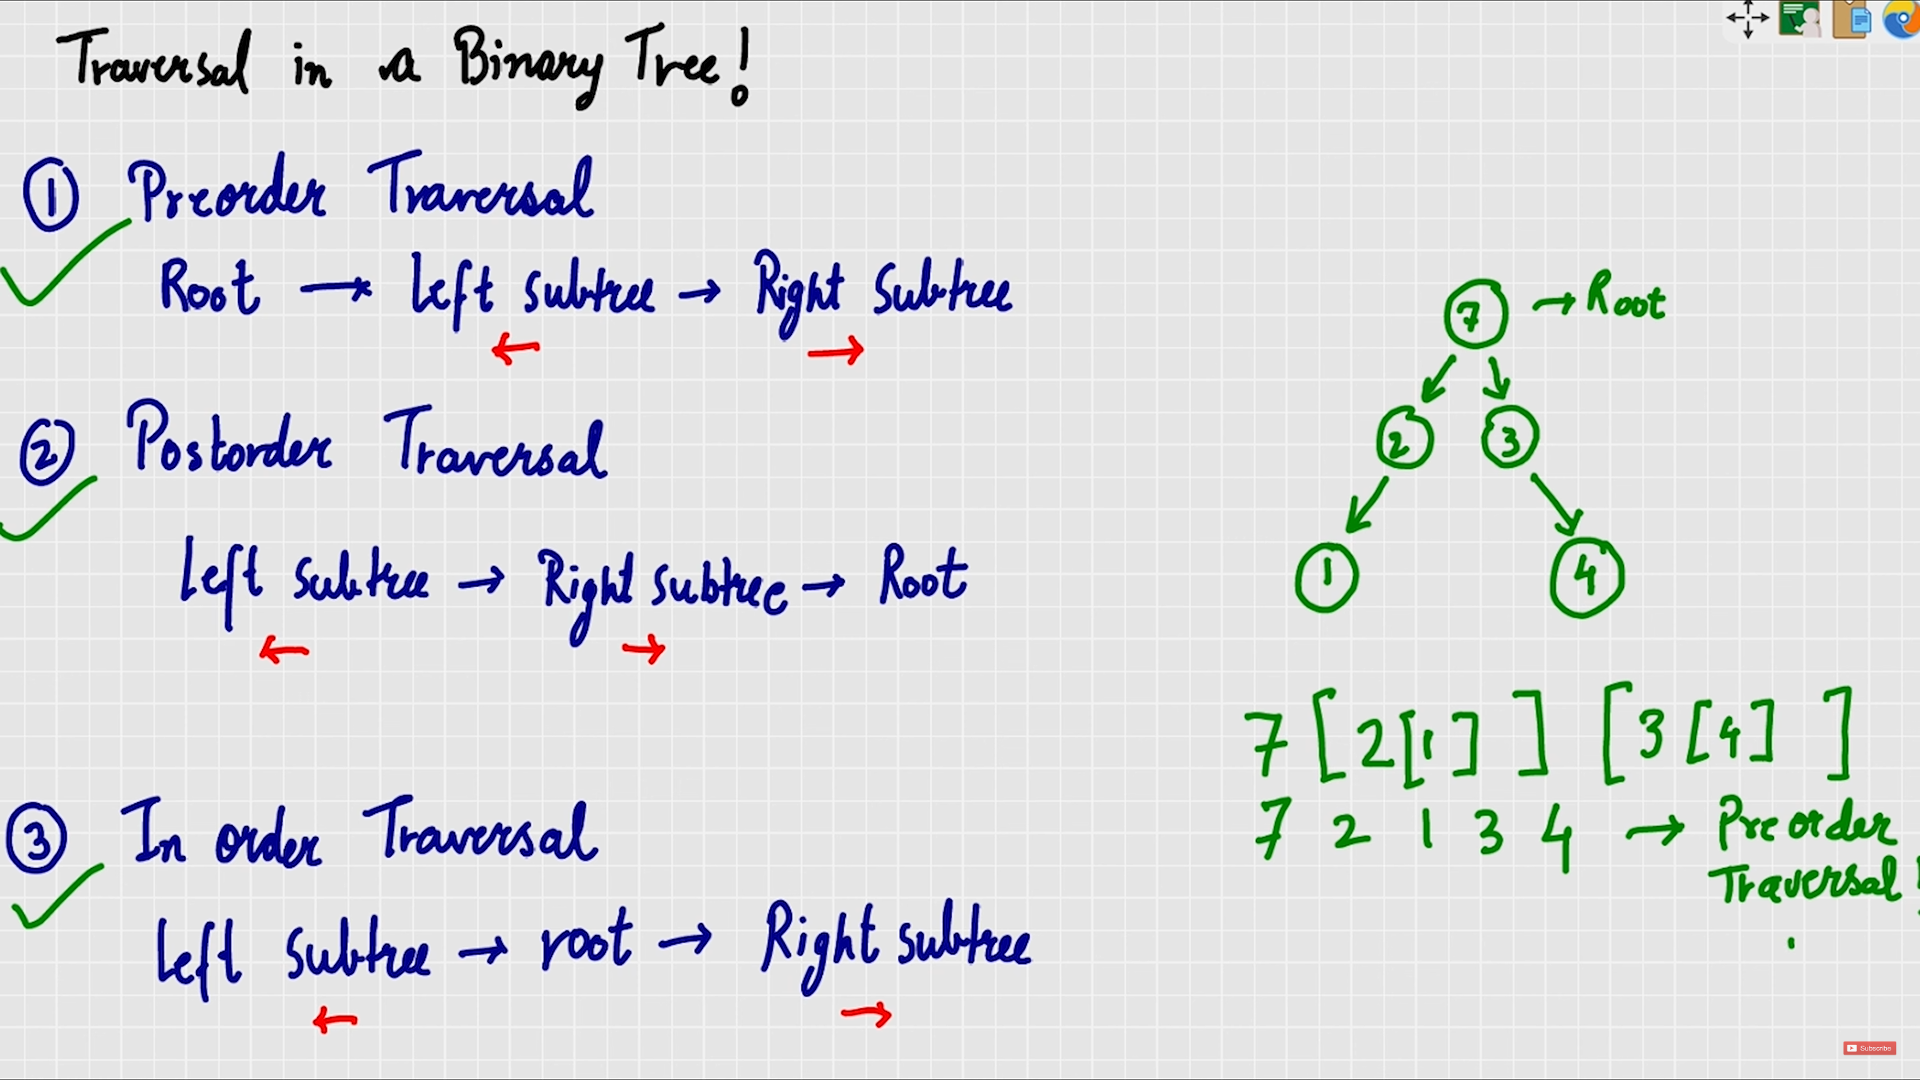 Traversal in a Binary Tree!
① Preorder Traversal
Root → Left subtree → Right Subtree
② Postorder Traversal
Left subtree → Right subtree → Root
③ In order Traversal
Left Subtree → root → Right subtree
7 → Root
2 3
1 4
7 [ 2 [ 1 ] ] [ 3 [ 4 ] ]
7 2 1 3 4 → Preorder
Traversal !
Subscribe